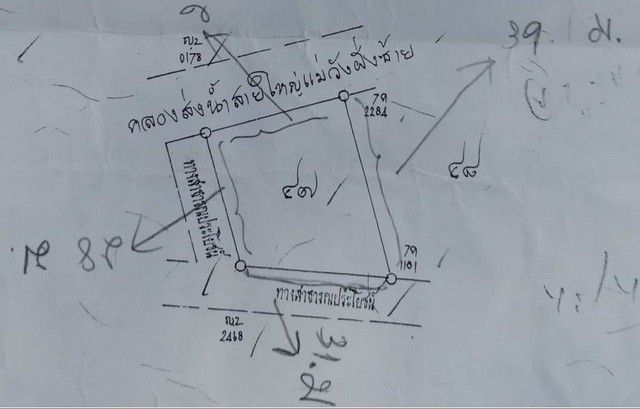 ญ2
0178
คลองส่งน้ำสายใหญ่แม่วังฝั่งซ้าย
39. ม.
7ค
2284
๔๘
๔๗
ทางสาธารณประโยชน์
7ค
1181
ทางสาธารณประโยชน์
ญ2
2468
31. ม